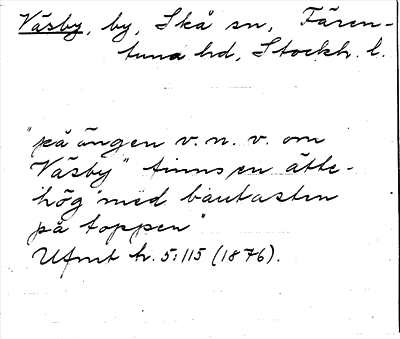 Väsby, by, Skå sn, Fären-
tuna hd, Stockh. l.
"på ängen v. n. v. om
Väsby" finns en ätte-
hög med bautasten
på toppen"
Ufmt h. 5:115 (1876).